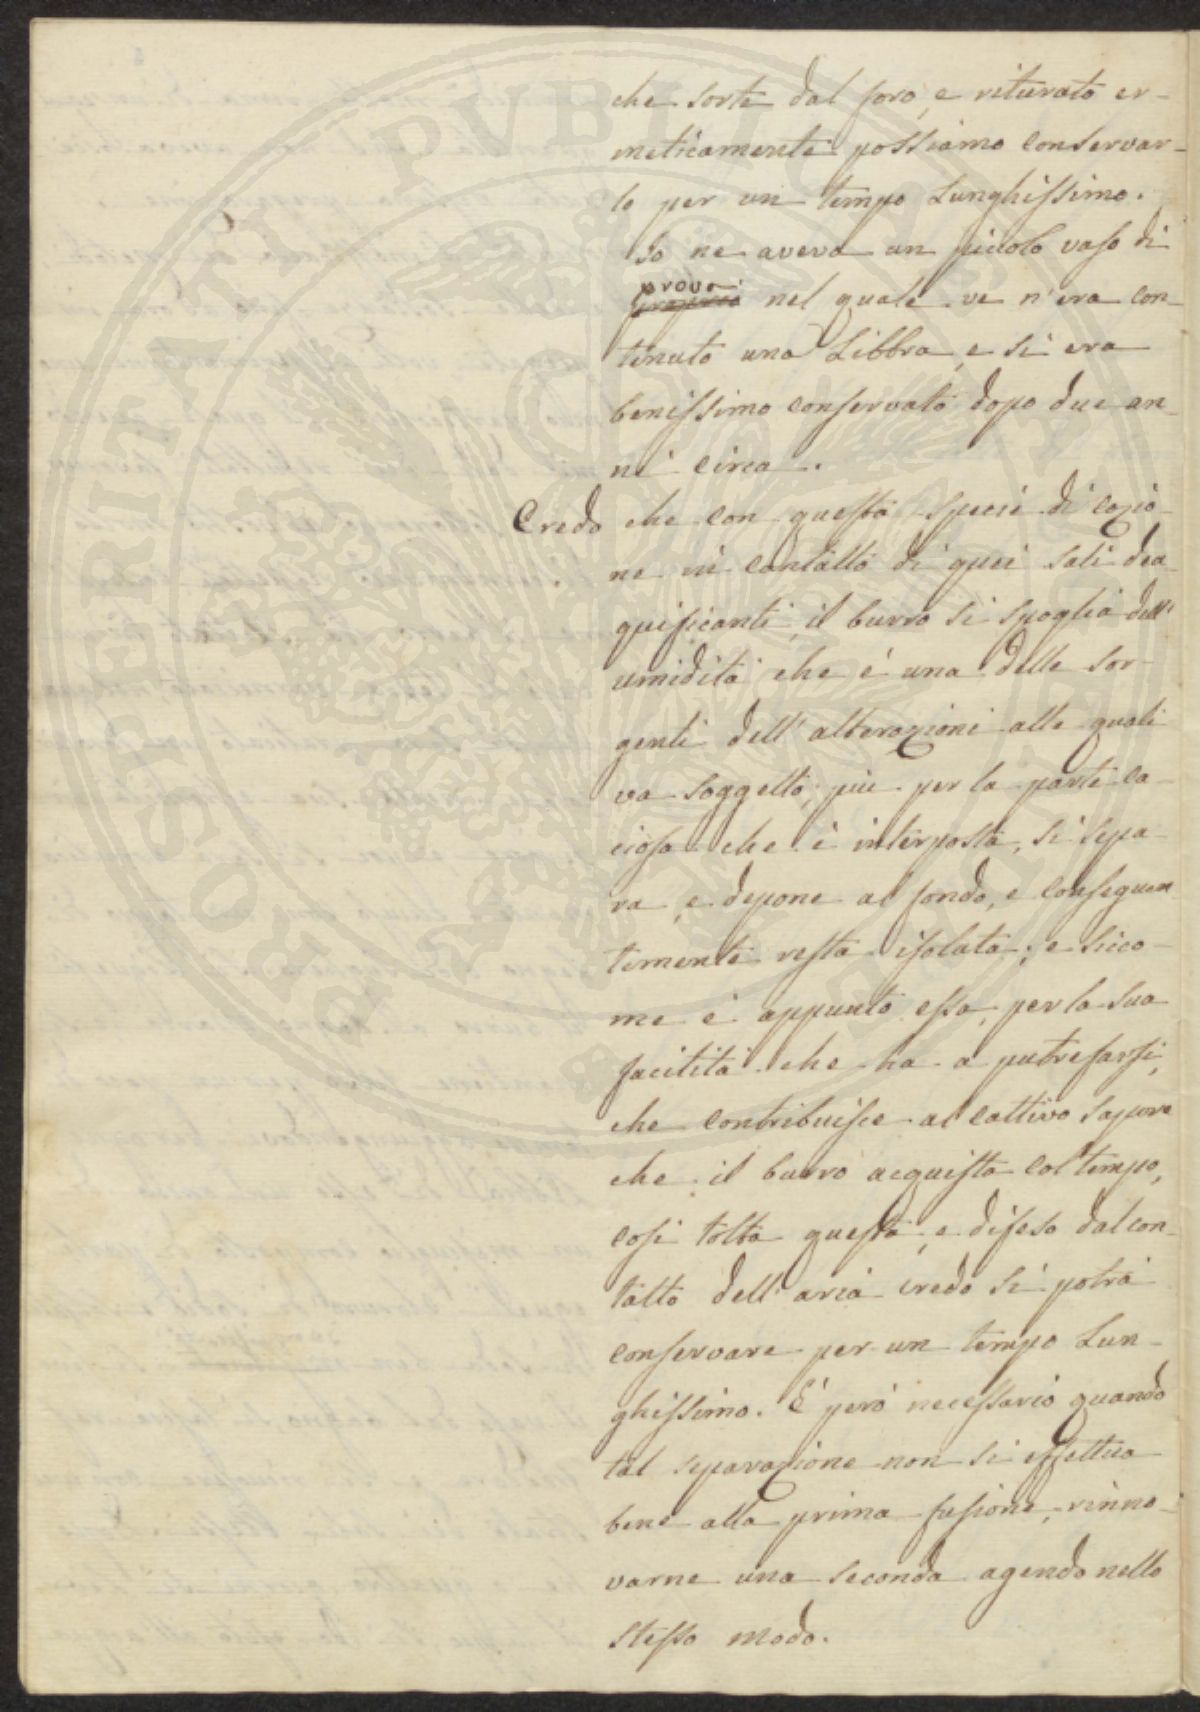 che sorte dal foro, e riturato er-
meticamente possiamo conservar-
lo per un tempo Lunghissimo.
Io ne aveva un piccolo vaso di
prova
nel quale ve n'era con-
tenuto una Libbra, e si era
benissimo conservato dopo due an-
ni circa.
Credo che con questa specie di cozio-
ne in contatto di quei sali dea-
quificanti, il burro si spoglia dell'
umidità che è una delle sor-
genti dell'alterazioni alle quali
va soggetto; più per la parte ca-
ciosa che è interposta, si sepa-
ra, e depone al fondo, e conseguen
temente resta isolata; e sicco-
me è appunto essa, per la sua
facilità che ha a putrefarsi,
che contribuisce al cattivo sapore
che il burro acquista col tempo,
cosi tolta questa, e difeso dal con-
tatto dell'aria credo si potrà
conservare per un tempo Lun-
ghissimo. È però necessario quando
tal separazione non si effettua
bene alla prima fusione, rinno-
varne una seconda agendo nello
stesso modo.
PROSPERITATI PVBLICAE